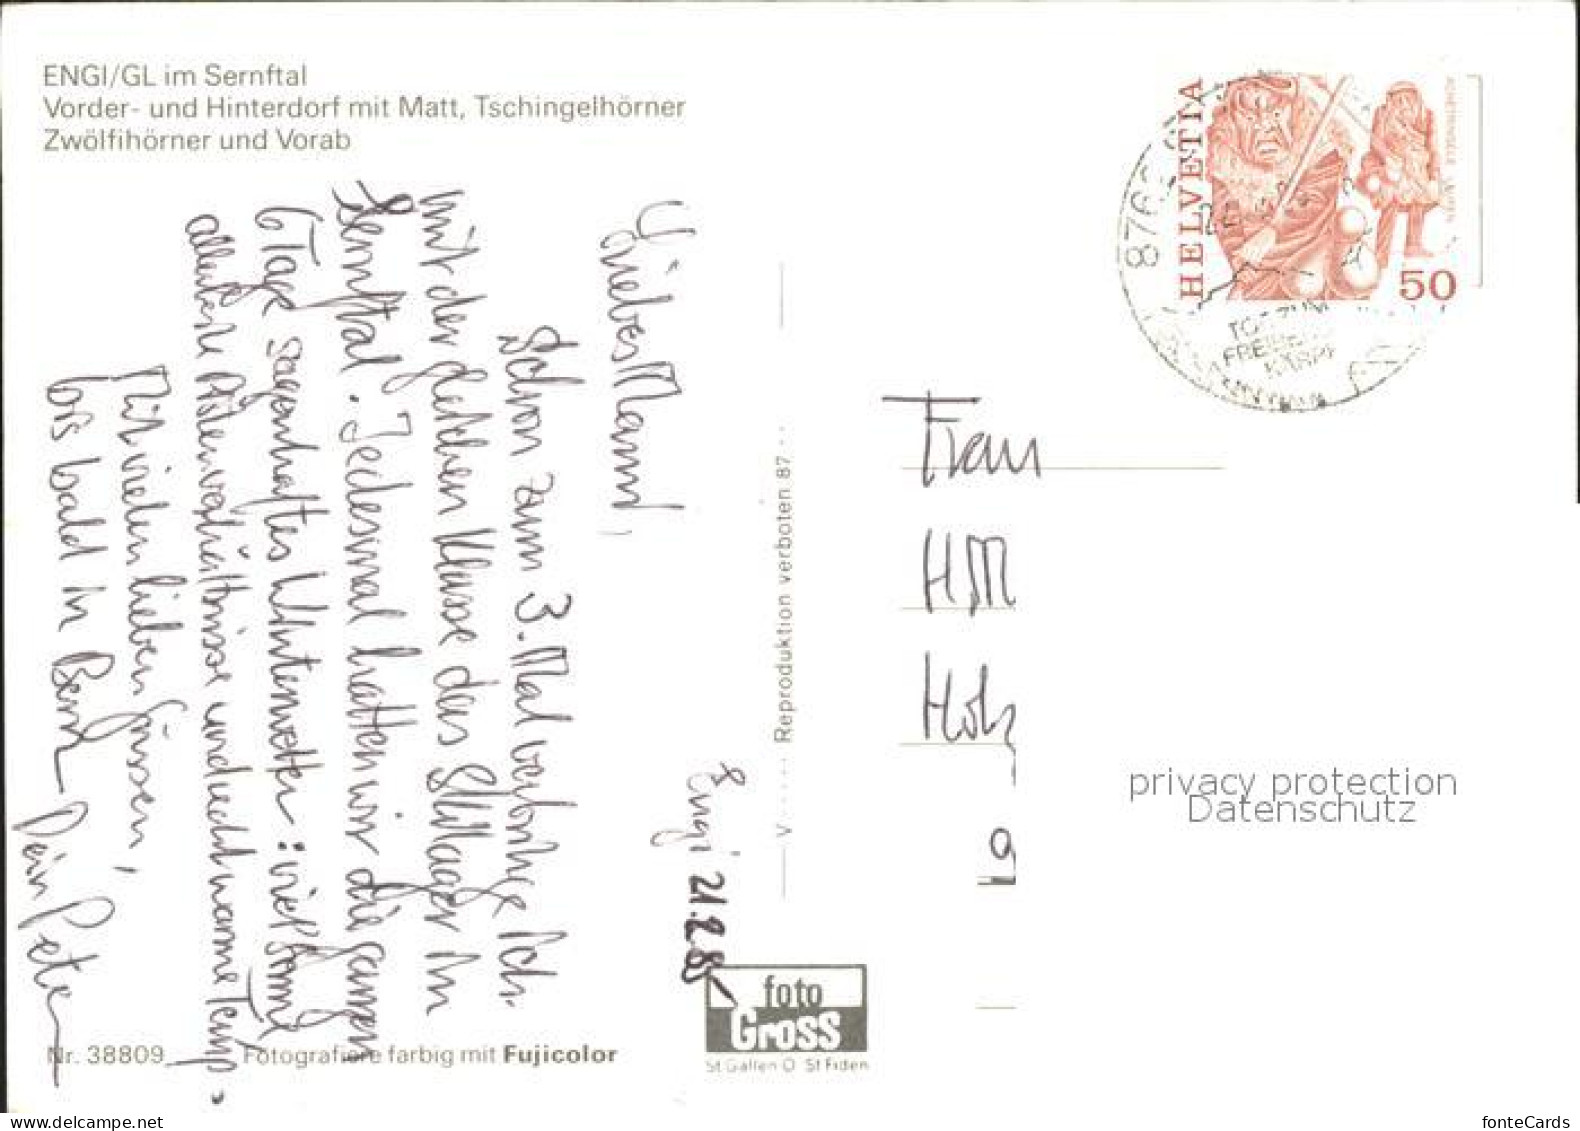 ENGI/GL im Sernftal
Vorder- und Hinterdorf mit Matt, Tschingelhörner
Zwölfihörner und Vorab
Engi 21.2.85
Schon zum 3. Mal verbringe ich
mit der gleichen Klasse das Skilager im
Sernftal. Jedesmal hatten wir die ganzen
6 Tage sagenhaftes Winterwetter: viel Sonne
allerbeste Pistenverhältnisse und recht warme Temp.
Mit vielen lieben Grüssen,
bis bald in Bern
Dein Peter
Nr. 38809
Fotografiere farbig mit Fujicolor
V ····· Reproduktion verboten 87 ··
foto
Gross
St. Gallen O St Fiden
HELVETIA
50
876
Frau
HM
Holz
9
privacy protection
Datenschutz
www.delcampe.net
fonteCards